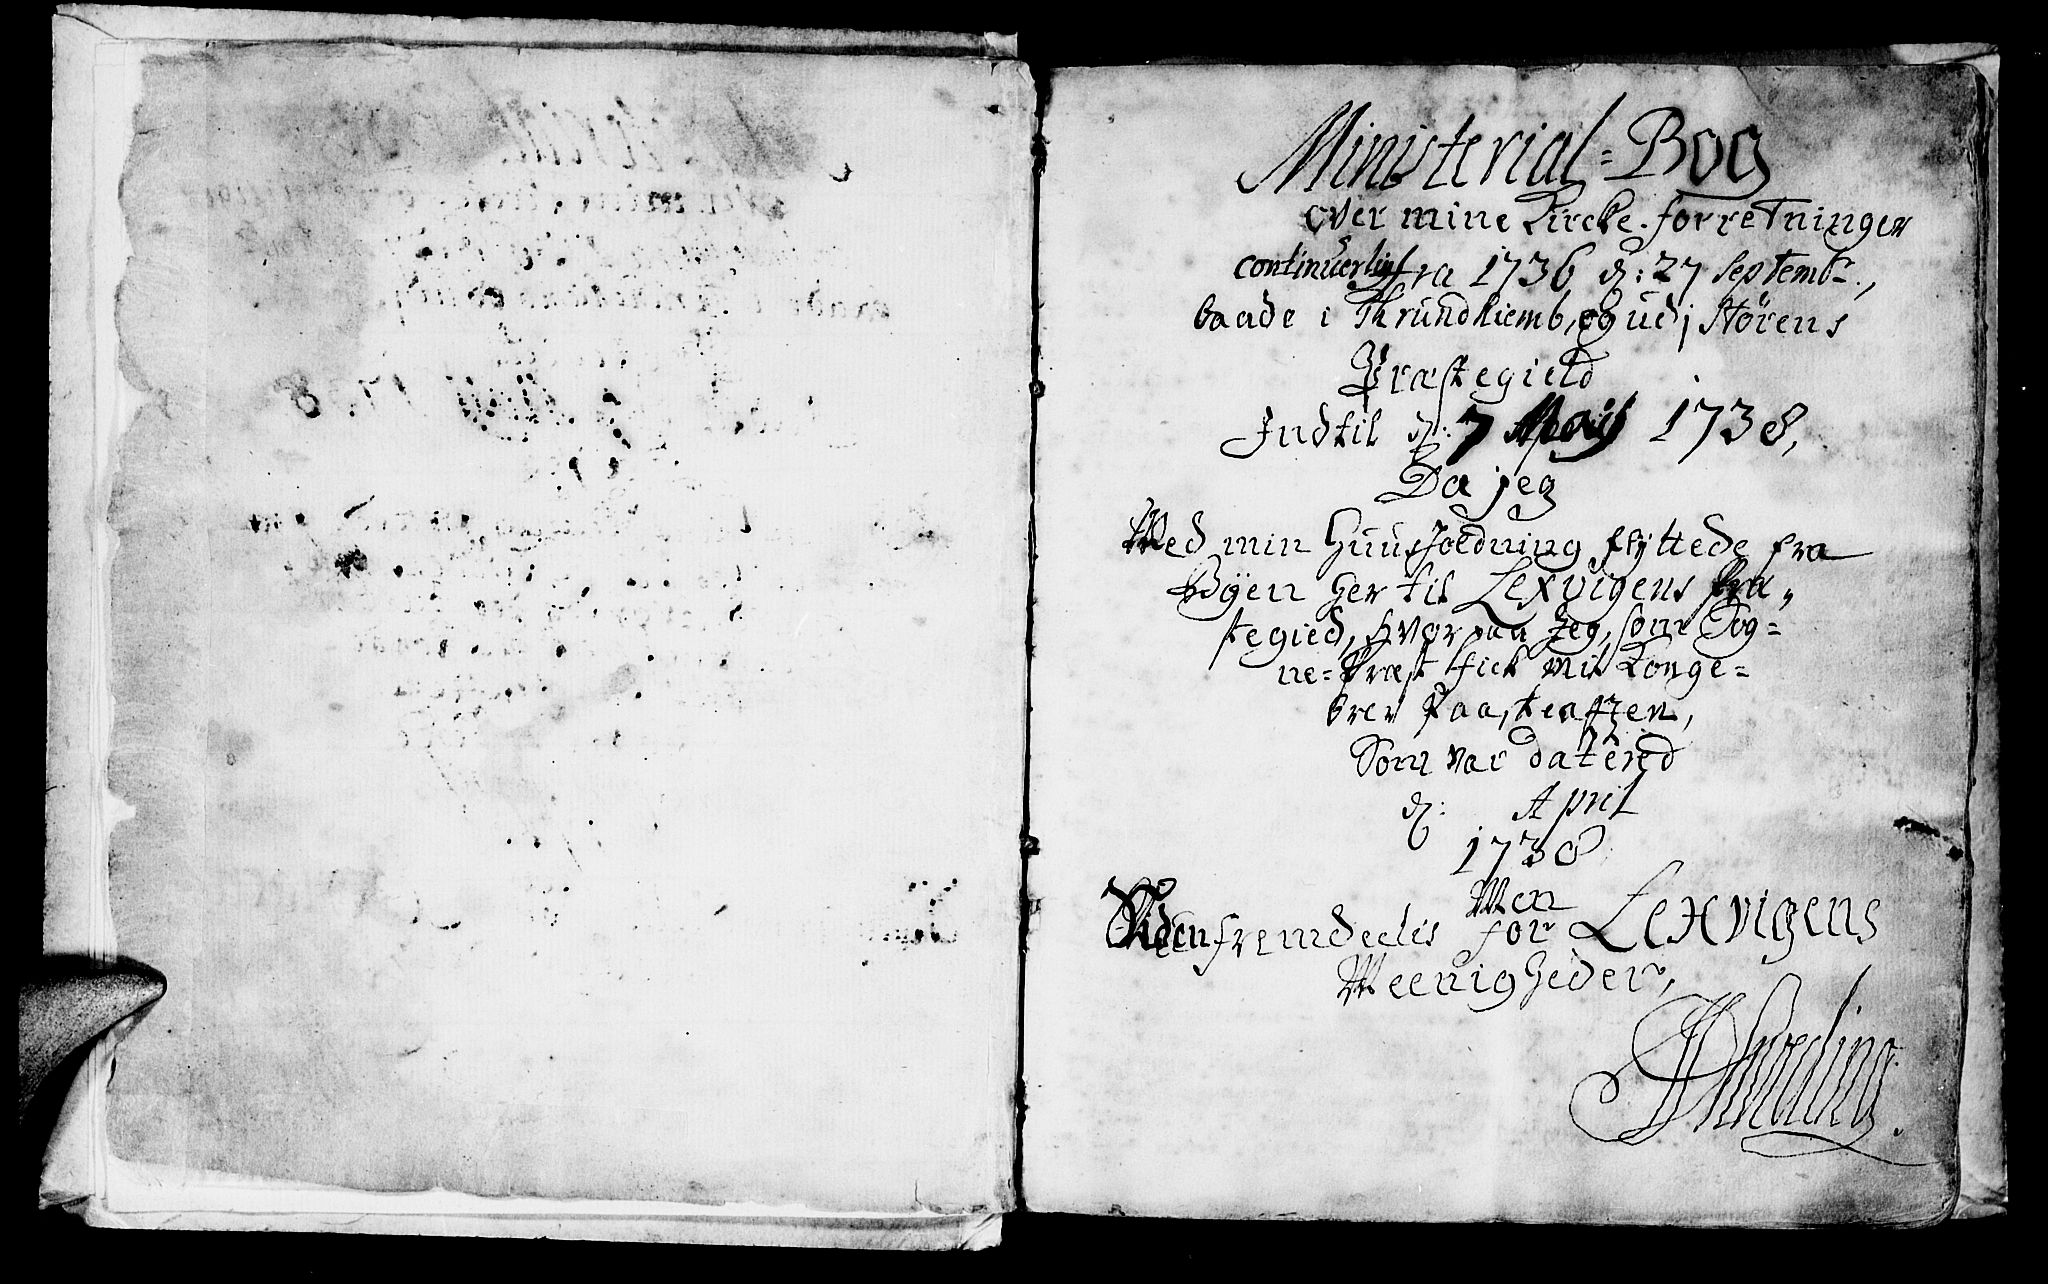 Ministerial=Bog
over mine Kircke-forretninger
continuerlig fra 1736 d: 27 Septembr.,
baade i Thrundhiemb, og udj Størens
Præstegield
Indtil d: 7 Maij 1738,
Da jeg
Med min Huusholdning flyttede fra
Byen her til Lexvigens Præ-
stegield, hvor paa Jeg, som Sog=
ne=Præst fick mit Konge=
brev
Som var datered
d: April
1738
Men
Siden fremdeelis for Lexvigens
Meenigheder,